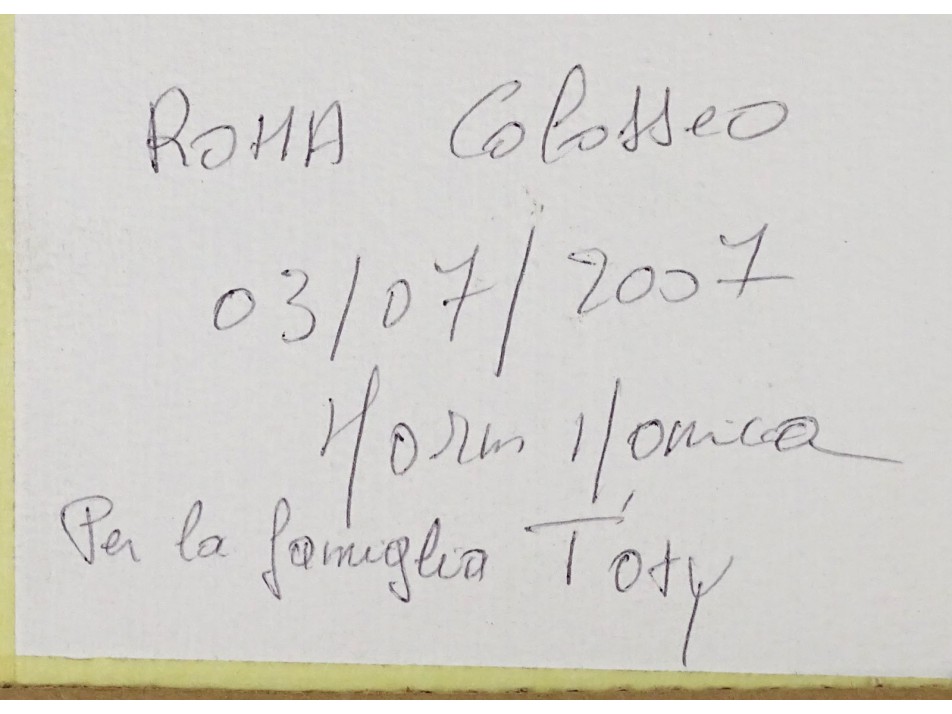 ROMA Colosseo
03/07/2007
Monica
Per la famiglia Tóty